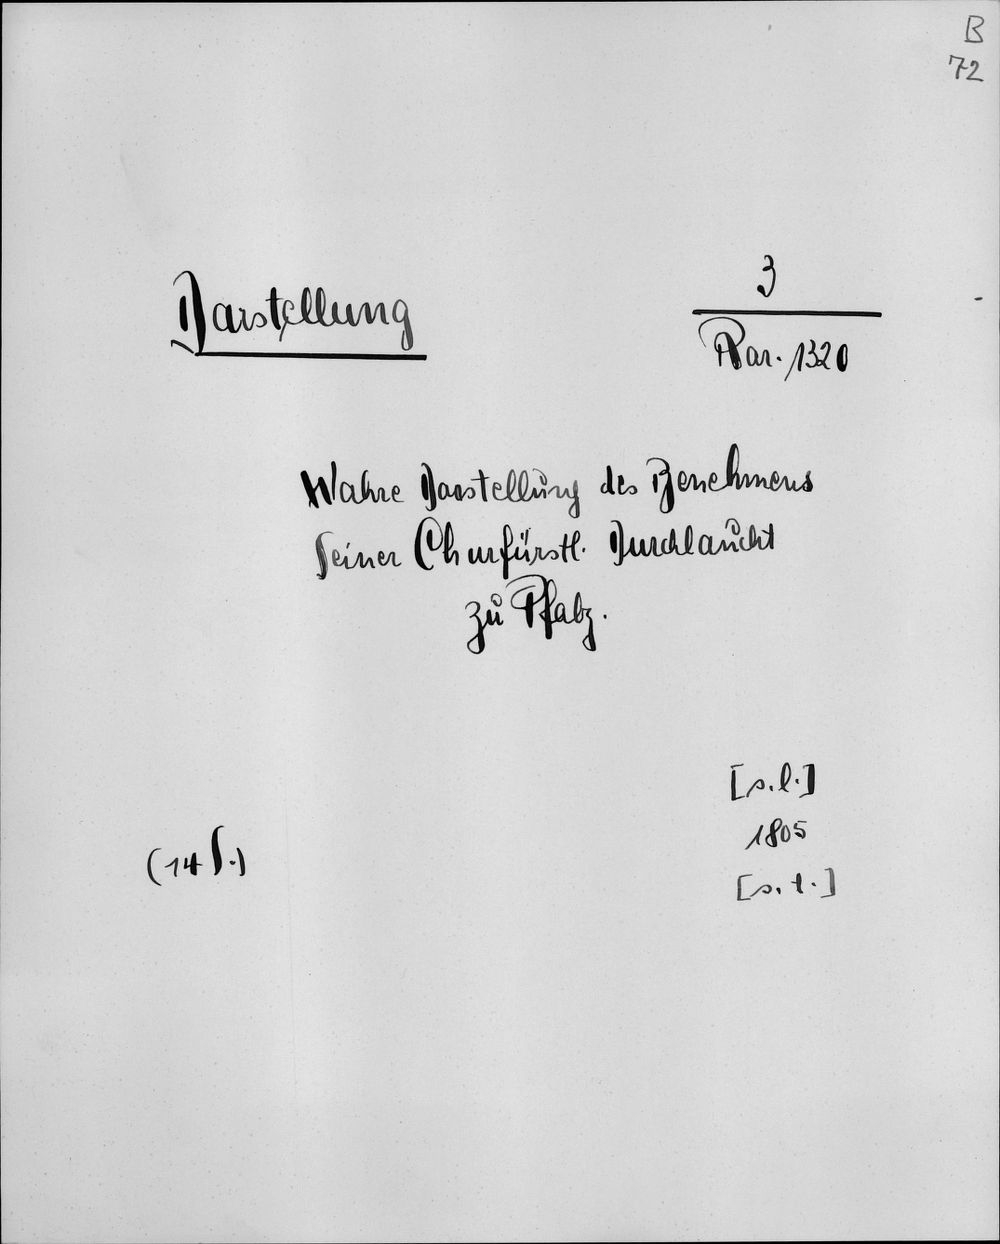 B
72
Darstellung
3
Rar. 1320
Wahre Darstellung des Benehmens
Seiner Churfürstl. Durchlaucht
zu Pfalz.
[s.l.]
1805
[s.t.]
(14 S.)